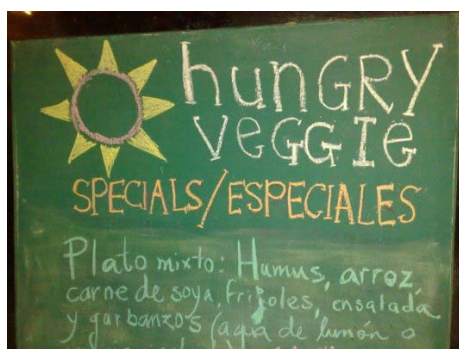 hunGRY
VeGGIe
SPECIALS/ESPECIALES
Plato mixto: Humus, arroz,
carne de soya, frijoles, ensalada
y garbanzos (agua de limón o